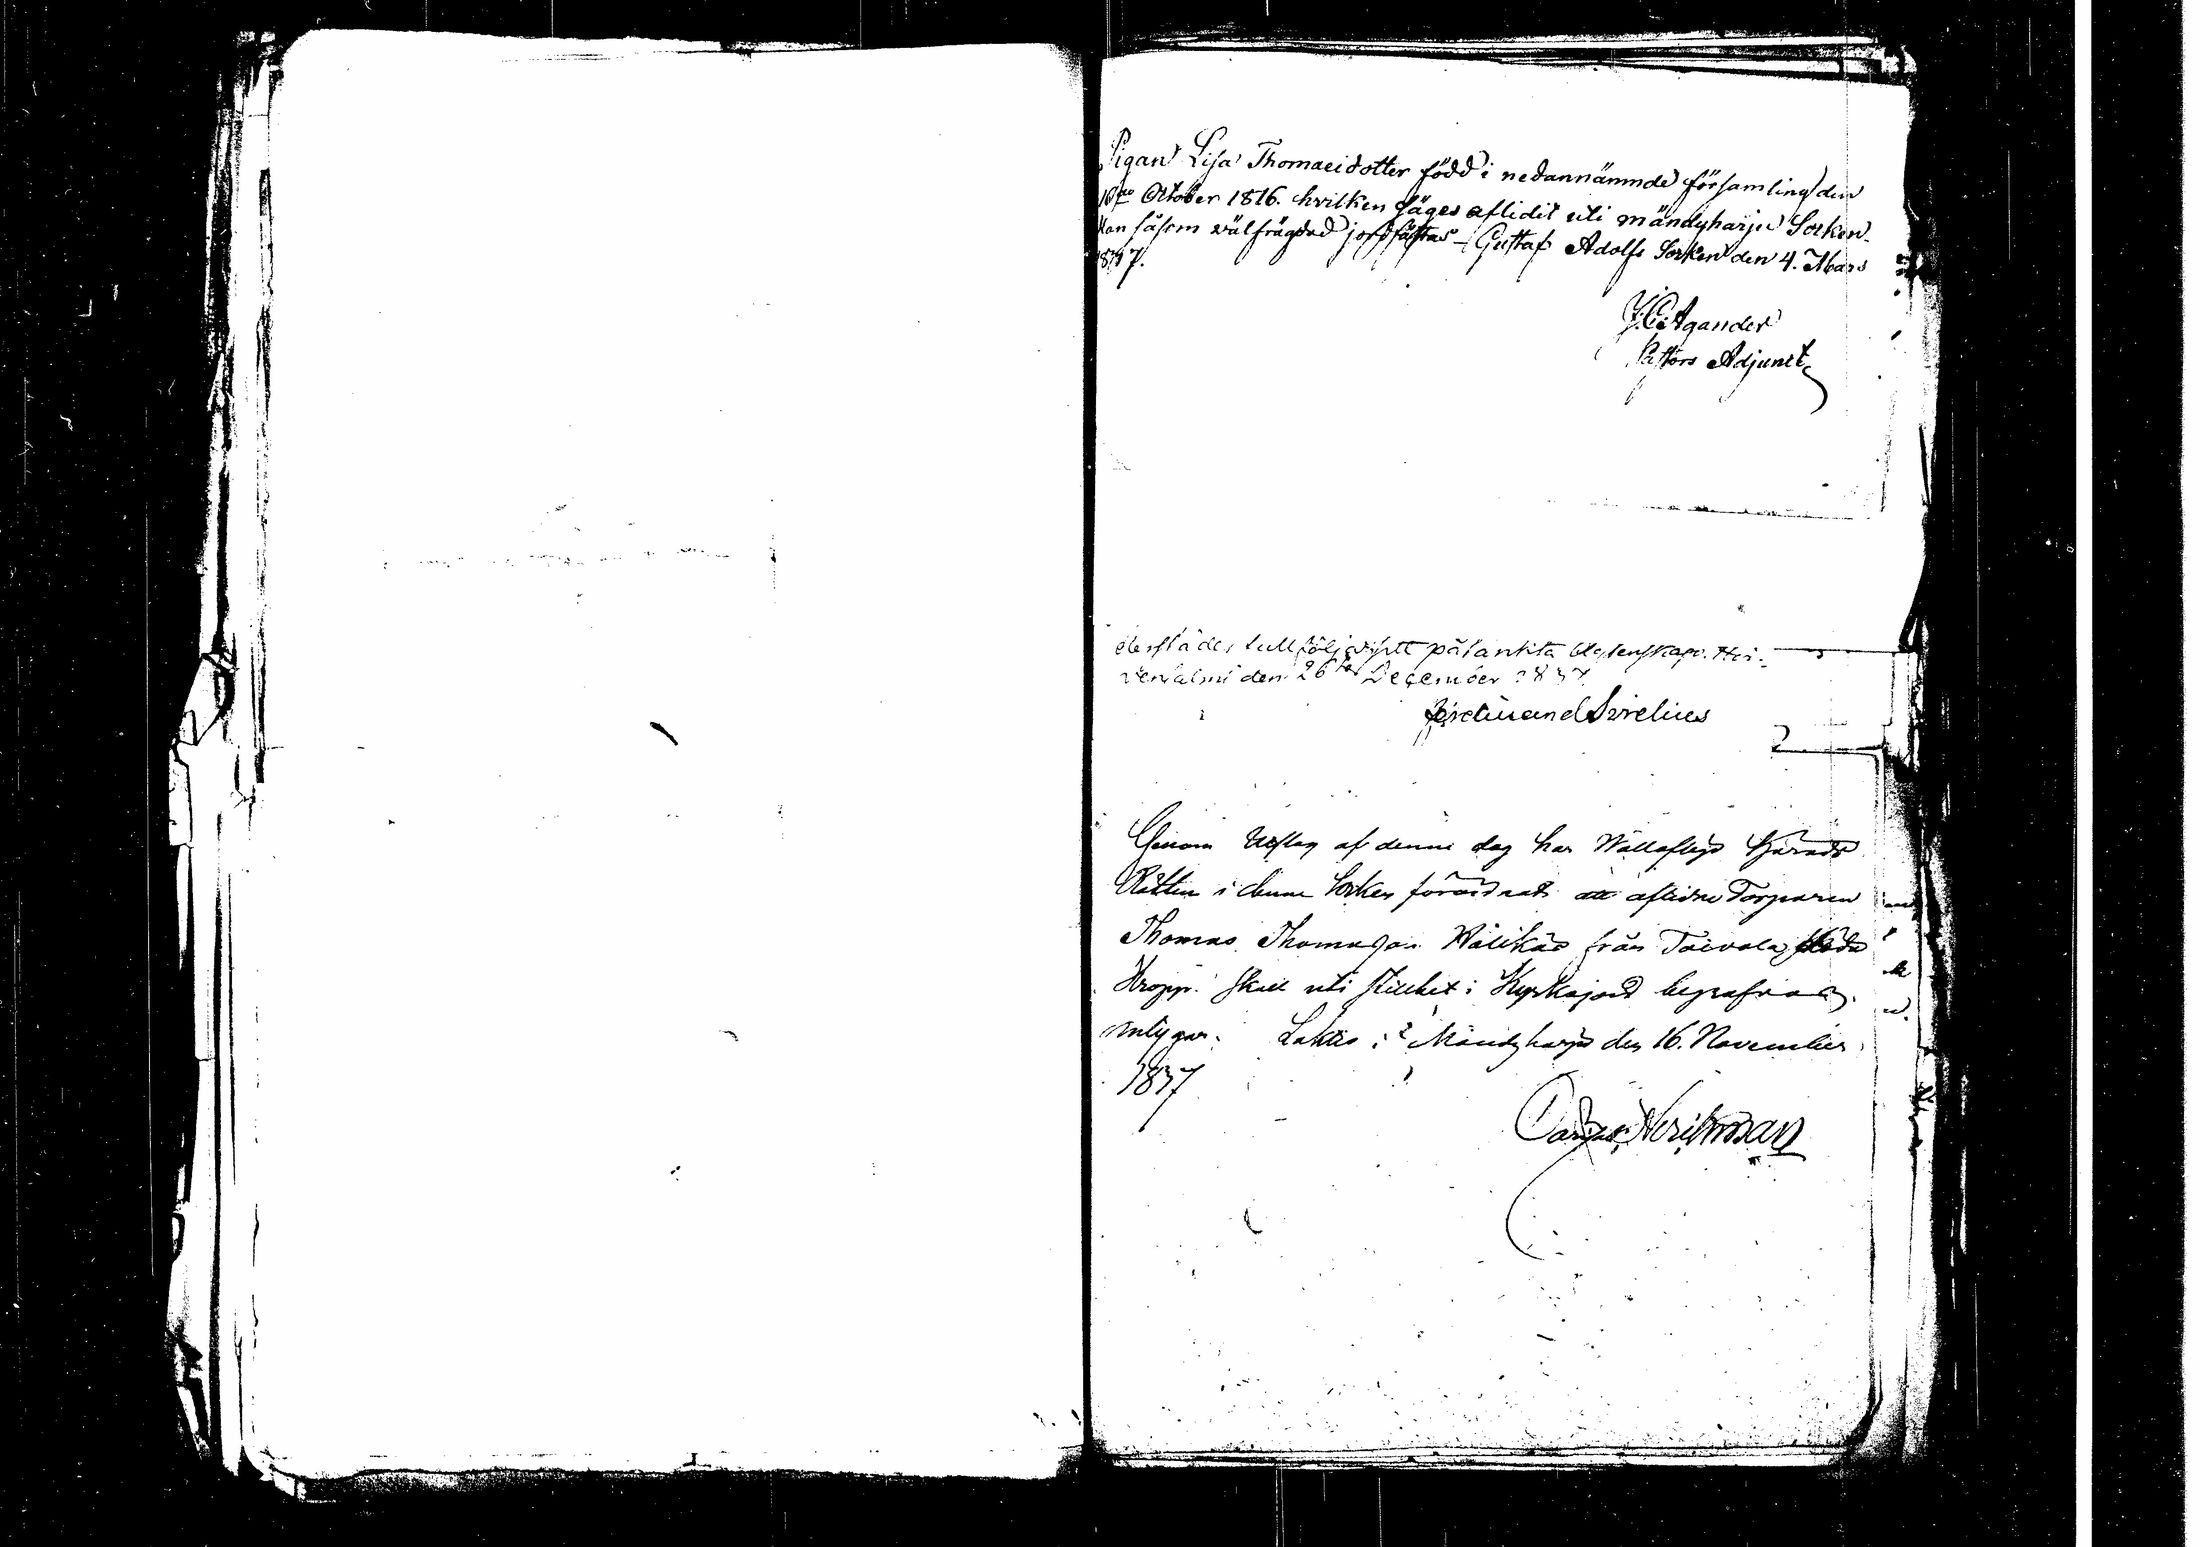 Pigan Lisa Thomaeidotter född i nedannämnde församling den
18de October 1816. hvilken säges aflidit uti mändyharju Sorken
kan såsom välfrägdad jordfästas – Gustaf Adolfs Sorken den 4. Mars
1837.
J. C. Agander
Pastors Adjunct
derstädes fullfölja sitt påtänkta Ägtenskap. Hoi-
venialmi den 26te December 1837
Ferdinand Sirelius
Genom Utslag af denne dag har Välloflige Härads
Rätten i denne Sorken förordnat att aflidne Torparen
Thomas Thomasson Wälikäs från Toivola döda
Kropp skall uti stillhet i Kyrkojord begrafvas
Mändyharju den 16. November
1837